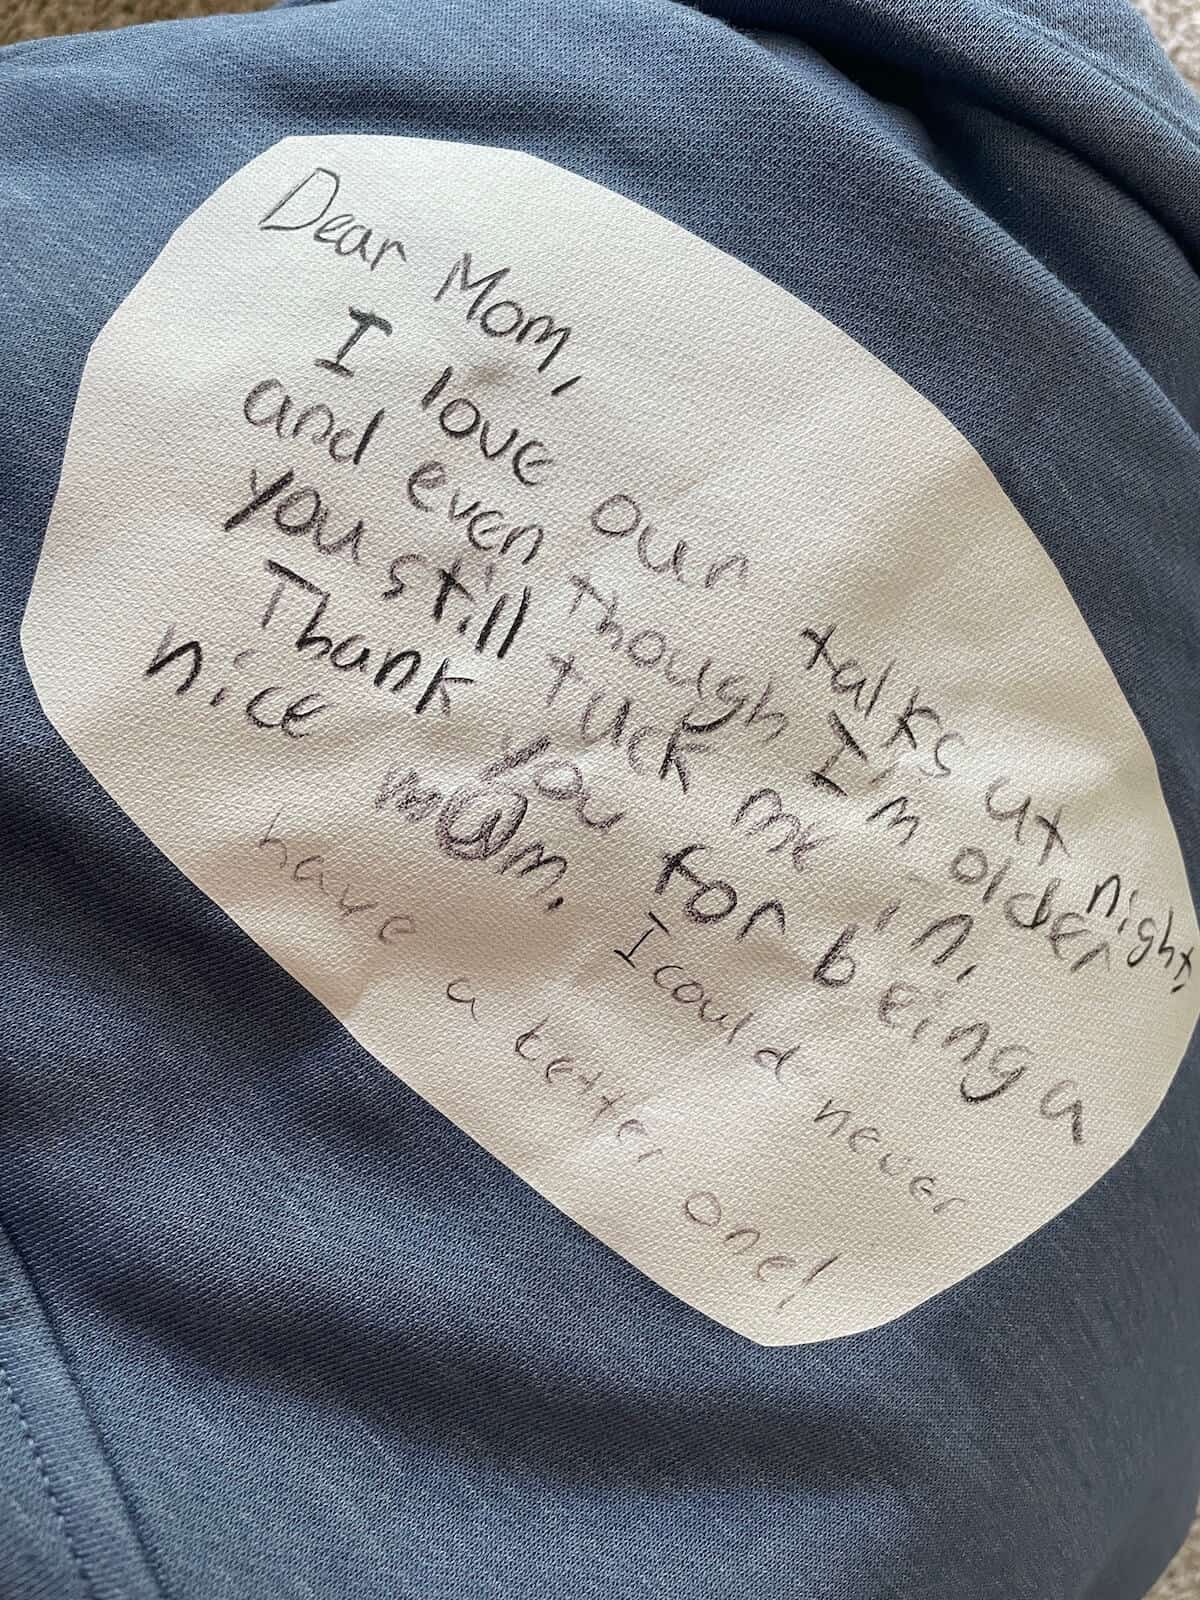 Dear Mom,
I love our talks at night,
and even though I'm older
you still tuck me in.
Thank you for being a
nice mom. I could never
have a better one!